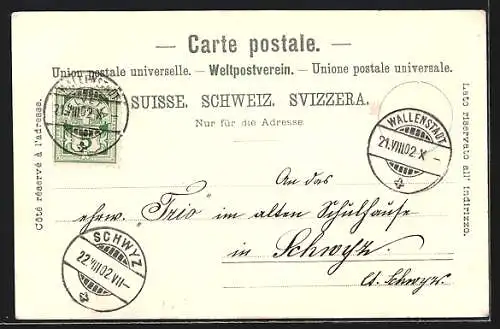 — Carte postale. —
Union postale universelle. — Weltpostverein. — Unione postale universale.
SUISSE. SCHWEIZ. SVIZZERA.
Nur für die Adresse
Côté réservé à l'adresse.
Lato riservato all' indirizzo.
WALLENSTADT
21.VIII.02.X-
HELVETIA
5
WALLENSTADT
21.VIII.02.X-
An das
ehrw. "Trio" im alten Schulhause
in Schwyz
Ct. Schwyz.
SCHWYZ
22.VIII.02.VII-